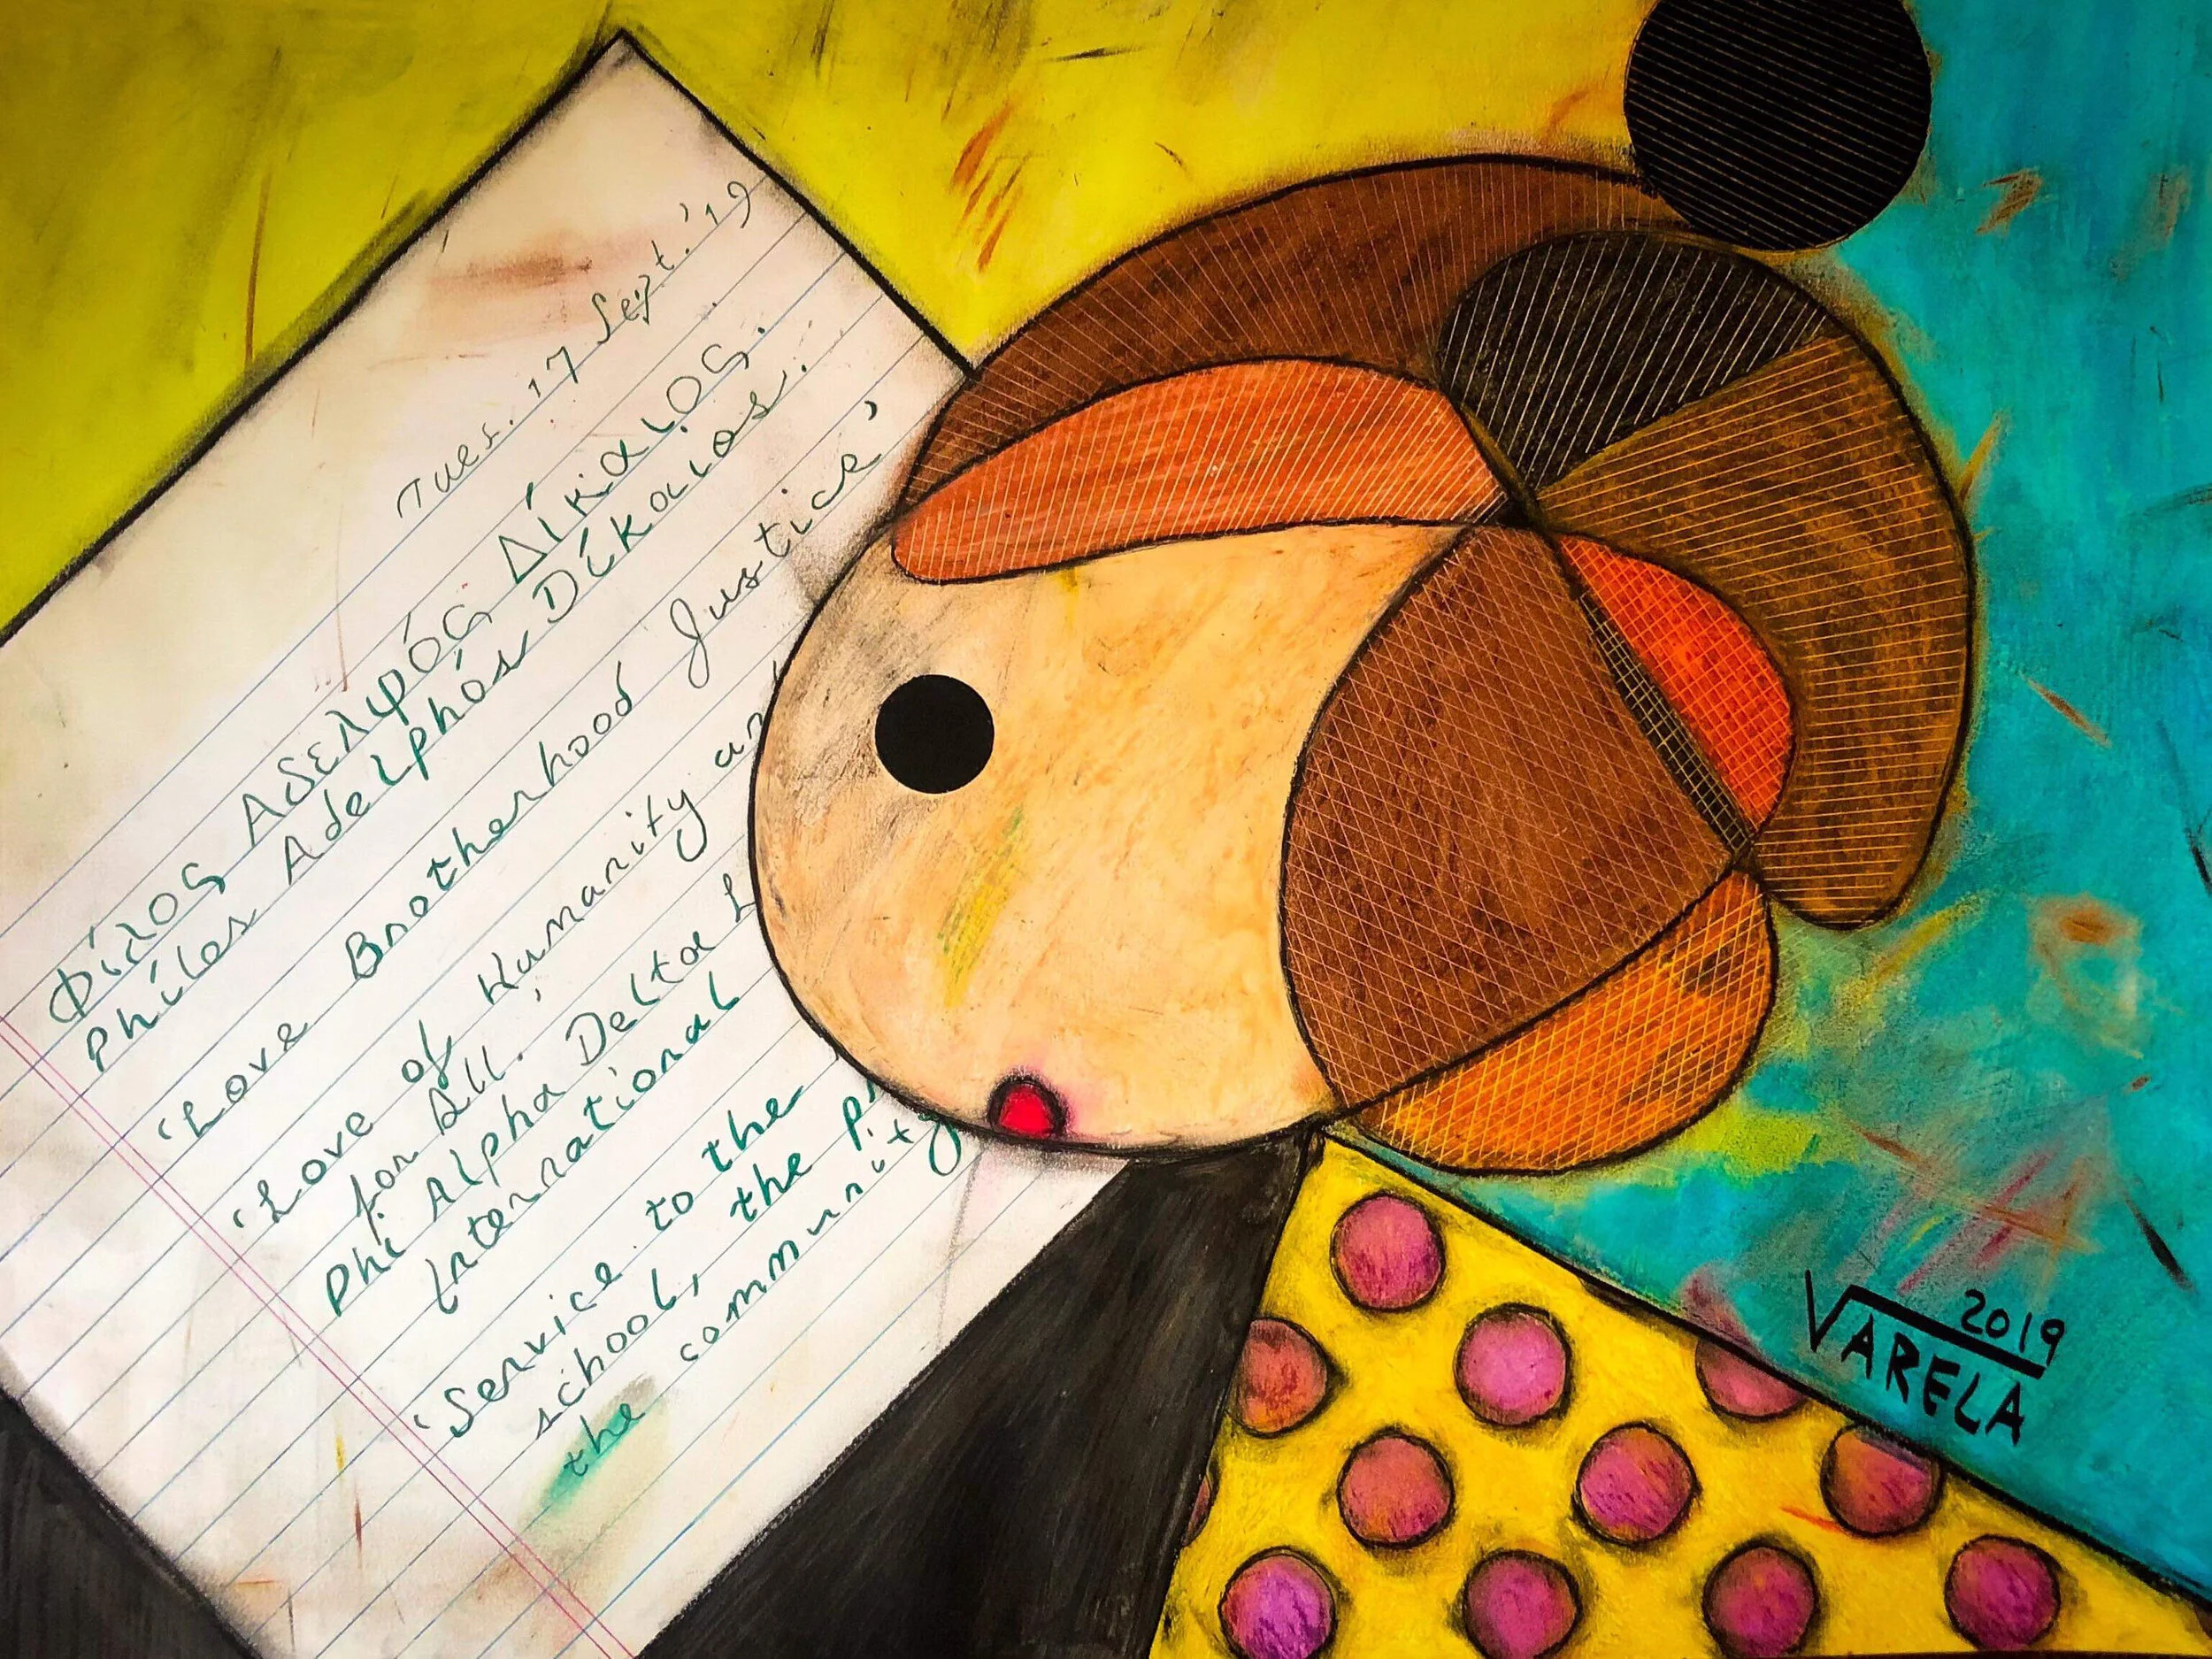 Tues. 17 Sept. '19
Φίλος Αδελφός Δίκαιος.
Phílos Adelphós Díkaios.
'Love Brotherhood Justice'
'Love of Humanity
for All.'
Phi Alpha Delta
International
'Service to the
school, the
the community
2019
VARELA